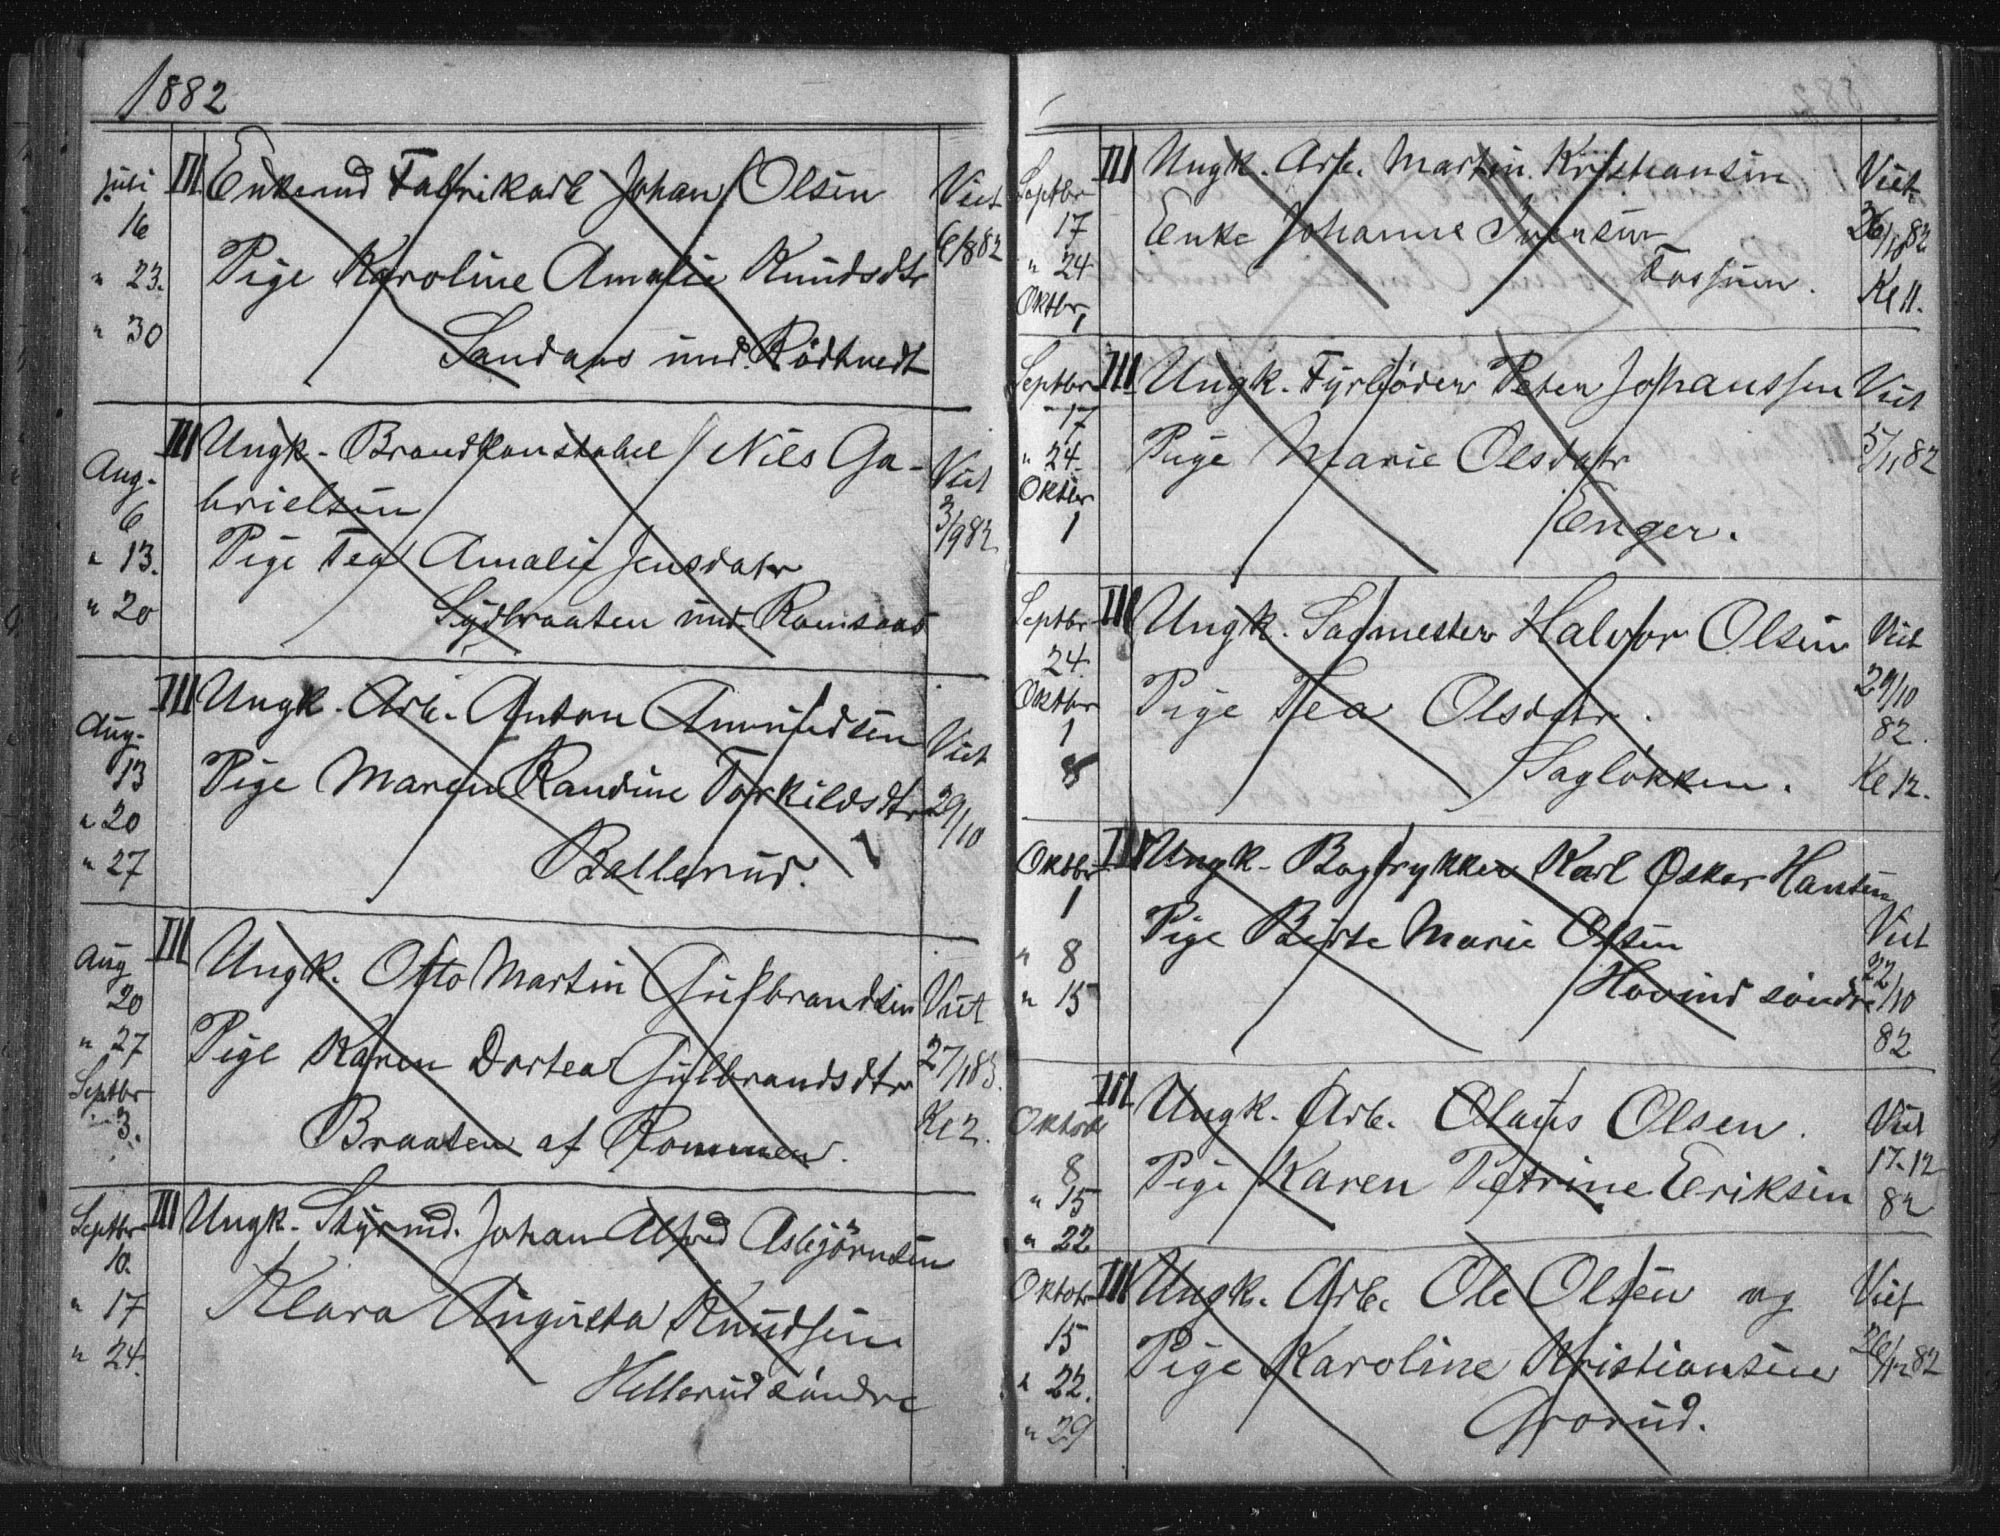 1882
Juli III Enkemd Fabrikarb Johan Olsen Viet
16 6/8 82
" 23. Pige Karoline Amalie Knudsdtr
" 30 Sandaas und. Rödtvedt
III Ungk. Brandkonstabel Nils Ga-
Aug. brielsen Viet
6 3/9 82
" 13. Pige Tea Amalie Jensdatr
" 20 Lydbraaten und. Romsaas
III Ungk. Arb. Anton Amundsen
Aug. Viet
13 Pige Maren Randine Torkildsdtr 29/10
" 20
" 27 Ballerud.
III
Aug Ungk. Otto Martin Gulbrandsen Viet
20
" 27 Pige Karen Dortea Gulbrandsdtr 27/1 83.
Septbr
3. Braaten af Rommen. Kl 2.
Septbr III Ungk. Styrmd. Johan Alfred Asbjörnsen
10.
" 17 Klara Augusta Knudsen
" 24. Hellerud söndre
Septbr III Ungk. Arb. Martin Kristiansen Viet
17 Enke Johanne Svensen 26/10 82
" 24 Fossum.
Oktbr 1 Kl 11.
Septbr III Ungk. Fyrböder Peter Johanssen Viet
17
" 24. Pige Marie Olsdatr 5/11 82
Oktbr
1 Enger.
Septbr III Ungk. Sagmester Halvor Olsen Viet
24. 29/10
Oktbr Pige Tea Olsdatr. 82.
1
8 Saglökken. Kl 12.
Oktbr III Ungk. Bogtrykker Karl Oskar Hansen
1 Pige Birte Marie Olsen Viet
" 8 22/10
" 15 Hovind söndre
82
III Ungk. Arb. Olaus Olsen. Viet
Oktobr
8 Pige Karen Petrine Eriksen 17-12
" 15 82
" 22
Oktobr III Ungk. Arb. Ole Olsen og Viet
15
" 22. Pige Karoline Kristiansen 26/12 82
" 29 Grorud.